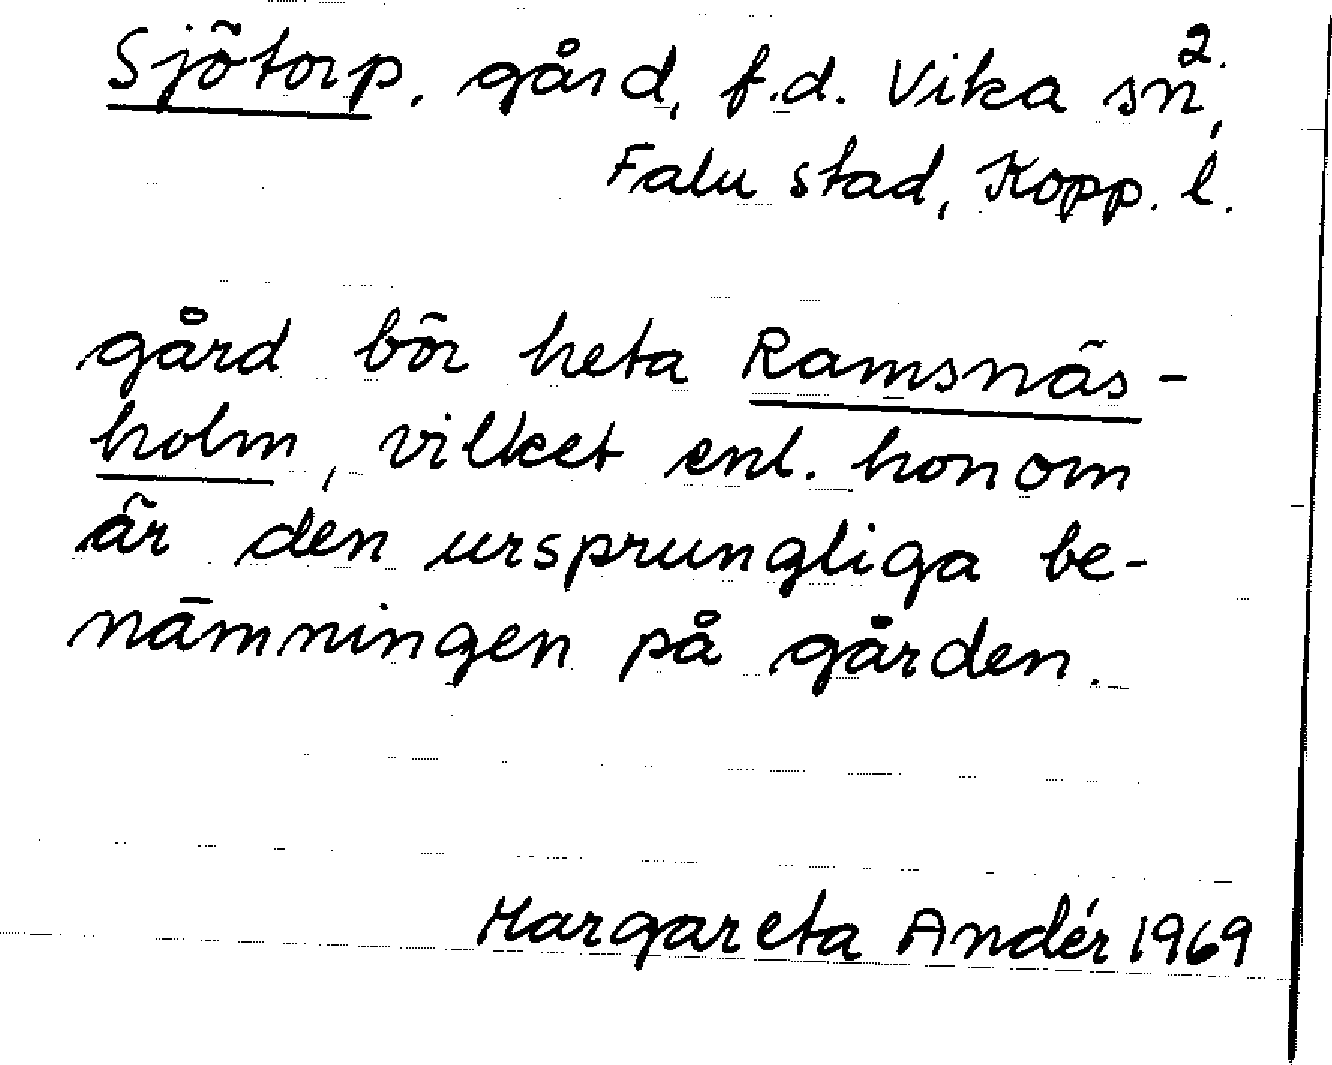 2.
Sjötorp, gård, f.d. Vika sn,
Falu stad, Kopp. l.
gård bör heta Ramsnäs-
holm, vilket enl. honom
är den ursprungliga be-
nämningen på gården.
Margareta Andér 1969